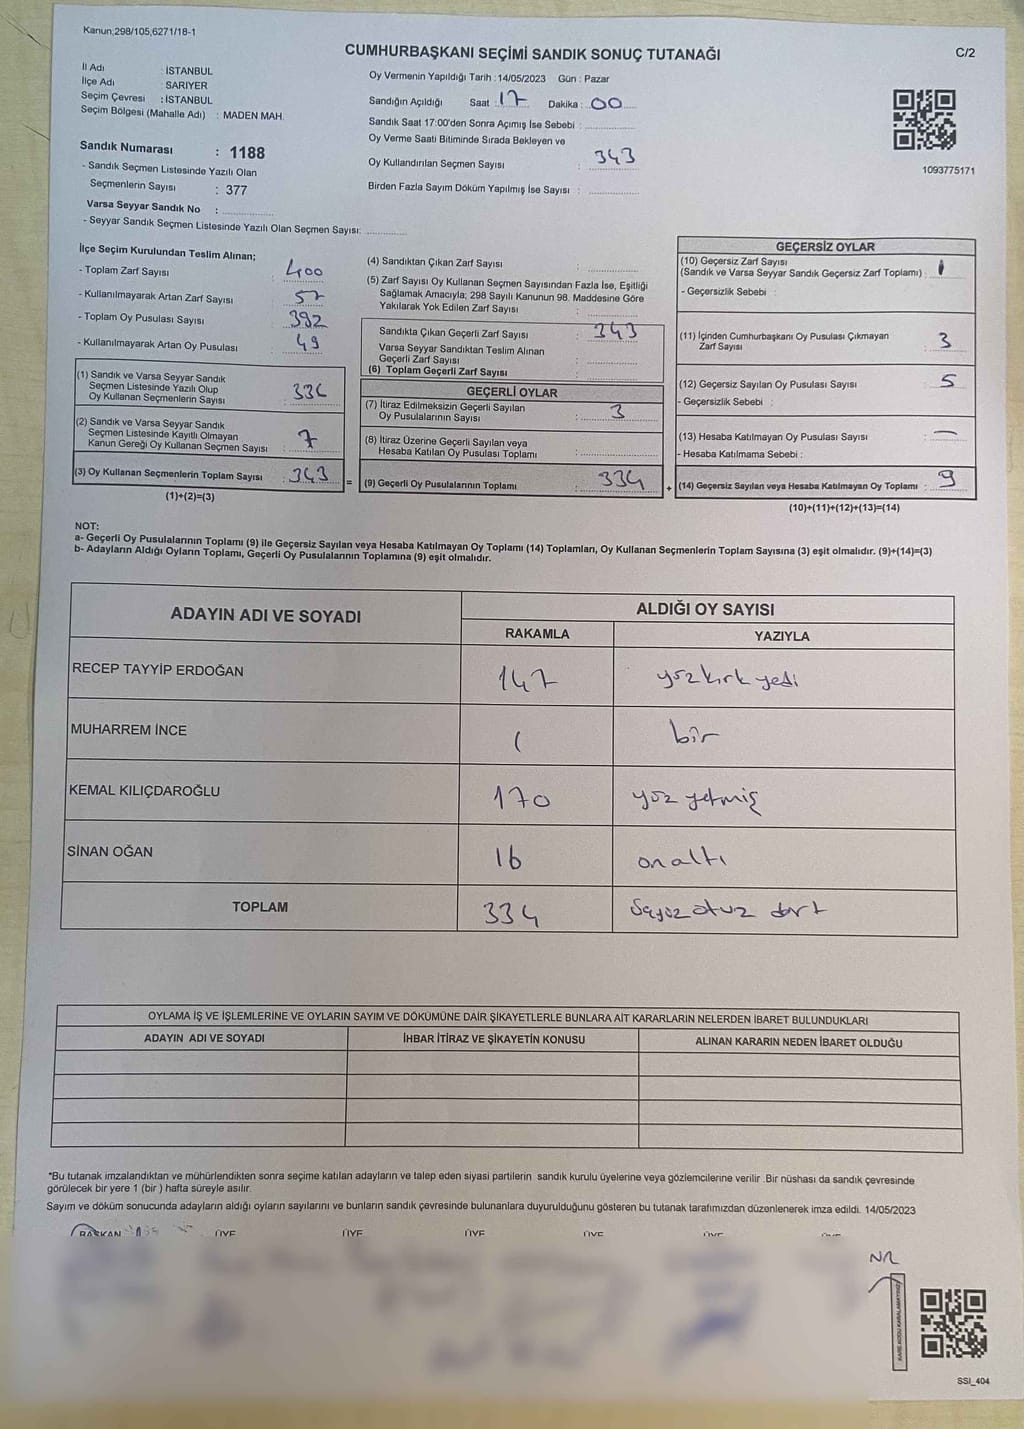 Kanun;298/105,6271/18-1
CUMHURBAŞKANI SEÇİMİ SANDIK SONUÇ TUTANAĞI
C/2
İl Adı : İSTANBUL
İlçe Adı : SARIYER
Seçim Çevresi : İSTANBUL
Seçim Bölgesi (Mahalle Adı) : MADEN MAH.
Sandık Numarası : 1188
- Sandık Seçmen Listesinde Yazılı Olan
Seçmenlerin Sayısı : 377
Varsa Seyyar Sandık No :
- Seyyar Sandık Seçmen Listesinde Yazılı Olan Seçmen Sayısı:
Oy Vermenin Yapıldığı Tarih : 14/05/2023 Gün : Pazar
Sandığın Açıldığı Saat : 17 Dakika : 00
Sandık Saat 17:00'den Sonra Açımış İse Sebebi :
Oy Verme Saati Bitiminde Sırada Bekleyen ve
Oy Kullandırılan Seçmen Sayısı : 343
Birden Fazla Sayım Döküm Yapılmış İse Sayısı :
1093775171
İlçe Seçim Kurulundan Teslim Alınan;
- Toplam Zarf Sayısı : 400
- Kullanılmayarak Artan Zarf Sayısı : 57
- Toplam Oy Pusulası Sayısı : 392
- Kullanılmayarak Artan Oy Pusulası : 49
(1) Sandık ve Varsa Seyyar Sandık
Seçmen Listesinde Yazılı Olup
Oy Kullanan Seçmenlerin Sayısı : 336
(2) Sandık ve Varsa Seyyar Sandık
Seçmen Listesinde Kayıtlı Olmayan
Kanun Gereği Oy Kullanan Seçmen Sayısı : 7
(3) Oy Kullanan Seçmenlerin Toplam Sayısı : 343 =
(1)+(2)=(3)
(4) Sandıktan Çıkan Zarf Sayısı :
(5) Zarf Sayısı Oy Kullanan Seçmen Sayısından Fazla İse, Eşitliği
Sağlamak Amacıyla; 298 Sayılı Kanunun 98. Maddesine Göre
Yakılarak Yok Edilen Zarf Sayısı :
Sandıkta Çıkan Geçerli Zarf Sayısı : 343
Varsa Seyyar Sandıktan Teslim Alınan
Geçerli Zarf Sayısı :
(6) Toplam Geçerli Zarf Sayısı :
GEÇERLİ OYLAR
(7) İtiraz Edilmeksizin Geçerli Sayılan
Oy Pusulalarının Sayısı : 3
(8) İtiraz Üzerine Geçerli Sayılan veya
Hesaba Katılan Oy Pusulası Toplamı :
(9) Geçerli Oy Pusulalarının Toplamı : 334 +
GEÇERSİZ OYLAR
(10) Geçersiz Zarf Sayısı
(Sandık ve Varsa Seyyar Sandık Geçersiz Zarf Toplamı) :
- Geçersizlik Sebebi :
(11) İçinden Cumhurbaşkanı Oy Pusulası Çıkmayan
Zarf Sayısı : 3
(12) Geçersiz Sayılan Oy Pusulası Sayısı : 5
- Geçersizlik Sebebi :
(13) Hesaba Katılmayan Oy Pusulası Sayısı : —
- Hesaba Katılmama Sebebi :
(14) Geçersiz Sayılan veya Hesaba Katılmayan Oy Toplamı : 9
(10)+(11)+(12)+(13)=(14)
NOT:
a- Geçerli Oy Pusulalarının Toplamı (9) ile Geçersiz Sayılan veya Hesaba Katılmayan Oy Toplamı (14) Toplamları, Oy Kullanan Seçmenlerin Toplam Sayısına (3) eşit olmalıdır. (9)+(14)=(3)
b- Adayların Aldığı Oyların Toplamı, Geçerli Oy Pusulalarının Toplamına (9) eşit olmalıdır.
ADAYIN ADI VE SOYADI
ALDIĞI OY SAYISI
RAKAMLA YAZIYLA
RECEP TAYYİP ERDOĞAN 147 yüzkırk yedi
MUHARREM İNCE 1 bir
KEMAL KILIÇDAROĞLU 170 yüz yetmiş
SİNAN OĞAN 16 onaltı
TOPLAM 334 üçyüz otuz dört
OYLAMA İŞ VE İŞLEMLERİNE VE OYLARIN SAYIM VE DÖKÜMÜNE DAİR ŞİKAYETLERLE BUNLARA AİT KARARLARIN NELERDEN İBARET BULUNDUKLARI
ADAYIN ADI VE SOYADI İHBAR İTİRAZ VE ŞİKAYETİN KONUSU ALINAN KARARIN NEDEN İBARET OLDUĞU
*Bu tutanak imzalandıktan ve mühürlendikten sonra seçime katılan adayların ve talep eden siyasi partilerin sandık kurulu üyelerine veya gözlemcilerine verilir .Bir nüshası da sandık çevresinde
görülecek bir yere 1 (bir ) hafta süreyle asılır.
Sayım ve döküm sonucunda adayların aldığı oyların sayılarını ve bunların sandık çevresinde bulunanlara duyurulduğunu gösteren bu tutanak tarafımızdan düzenlenerek imza edildi. 14/05/2023
BAŞKAN ÜYE ÜYE ÜYE ÜYE ÜYE
KARE KODU KARALAMAYINIZ
SSI_404